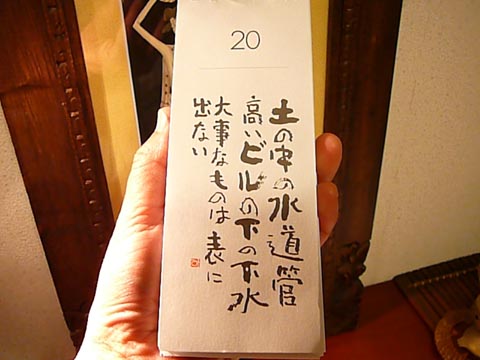 20
土の中の水道管
高いビルの下の下水
大事なものは 表に
出ない